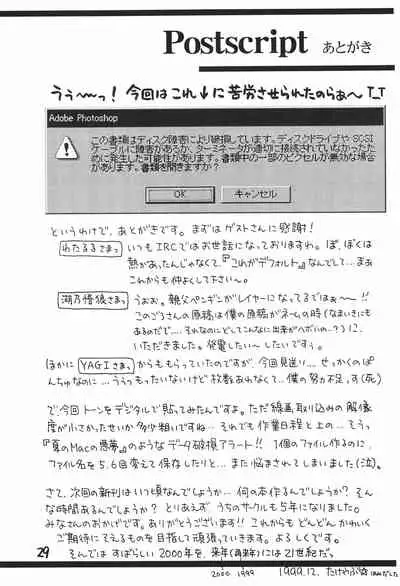 Postscript あとがき
うぅ~~っ! 今回はこれ↓に苦労させられたのらぁ~ T_T
Adobe Photoshop
この書類はディスク障害により破損しています。ディスクドライブや SCSI
ケーブルに障害があるか、ターミネータが適切に接続されていなかったた
めに発生した可能性があります。書類中の一部のピクセルが無効な場合
があります。書類を開きますか?
OK キャンセル
というわけで、あとがきです。まずはゲストさんに感謝!
わたるるさまっ いつもIRCではお世話になっておりますわ。ぼ、ぼくは
熱があったんじゃなくて、『これがデフォルト』なんでして...まぁ
これからも仲よくして下さい~。
瀬乃悟狼さまっ うぉぉ。親父ペンギンがレイヤーになってるではぁ~!!
このごうさんの原稿は僕の原稿がネームの時(なまいきにも
あるのだで....それなのにどしてこんなに出来がヘボいの..?)に、
いただきました。発電したい~したいですぅ。
ほかに YAGIさまっ からももらっていたのですが、今回見送り... せっかくのぽ
んちゅなのに...ううぅもったいないけど 枚数あれなくて...僕の努力不足っす(死)
で、今回トーンをデジタルで貼ってみたんですよ。ただ線画取り込みの解像
度が小さかったせいか多少粗いですね...それでも作業日程と上の...そうっ
『夏のMacの悪夢』のような データ破損アラート!! 1個のファイル作るのに、
ファイル名を5.6回変えて保存したりと... また悩まされてしまいました(泣)。
さて、次回の新刊はいつ頃なんでしょうか... 何の本作るんでしょうか? そん
な時間あるんでしょうか? とりあえず うちのサークルも5年になりました。
みなさんのおかげです。ありがとうございます!! これからも どんどん かわいく
ご期待にそえるものを目指して頑張っていきます。よろしくです。
29 そんでは すばらしい2000年を、来年(再来年)には21世紀だ。
2000 1999 1999.12.